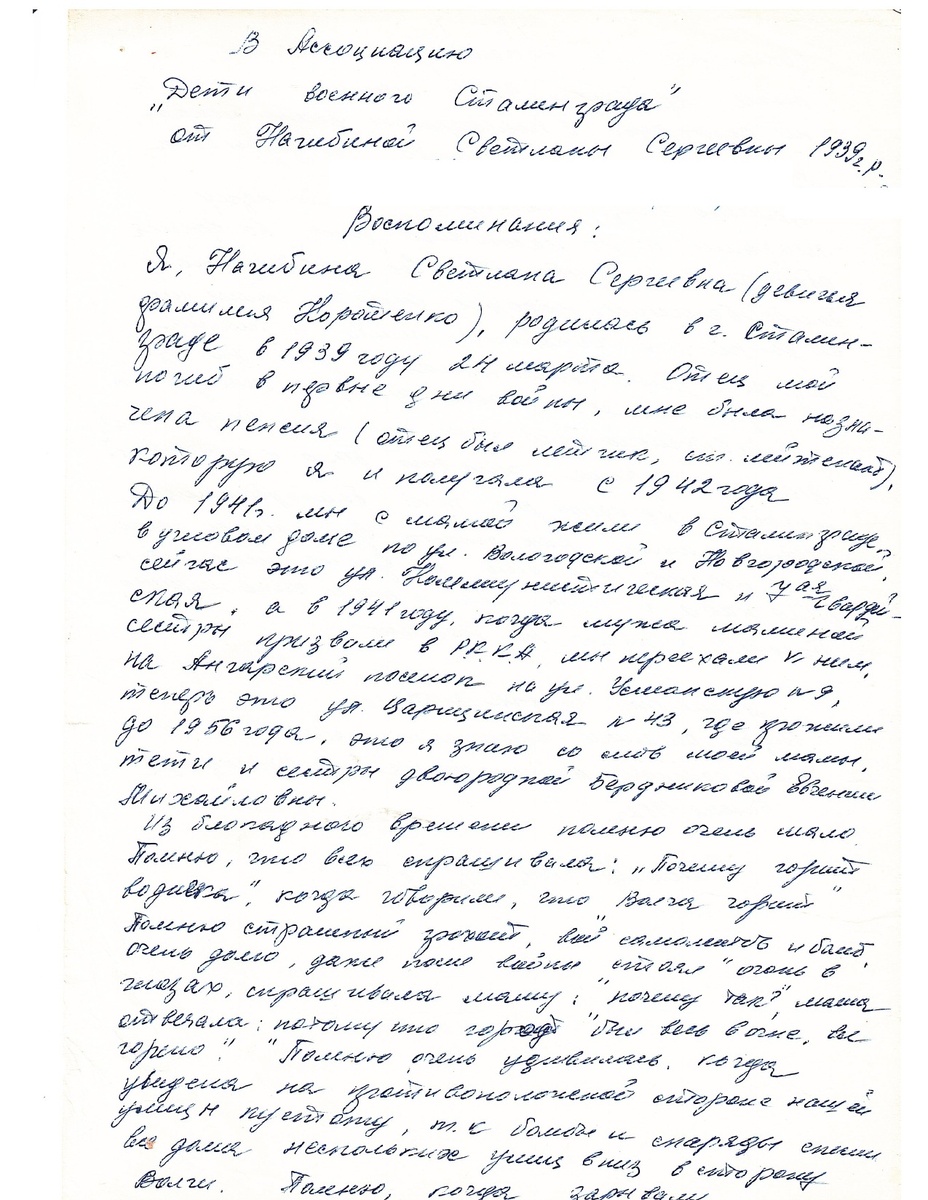 В Ассоциацию
„Дети военного Сталинграда"
от Нагибиной Светланы Сергеевны 1939г.р.
Воспоминания:
Я, Нагибина Светлана Сергеевна (девичья
фамилия Коротенко), родилась в г. Сталин-
граде в 1939 году 24 марта. Отец мой
погиб в первые дни войны, мне была назна-
чена пенсия (отец был летчик, ст. лейтенант),
которую я и получала с 1942 года
До 1941г. мы с мамой жили в Сталинграде,
в угловом доме по ул. Вологодской и Новгородской,
сейчас это ул. Коммунистическая и 7ая Гвардей-
ская, а в 1941 году, когда мужа маминой
сестры призвали в Р.К.К.А, мы переехали к ним,
на Ангарский поселок на ул. Усманскую №9,
теперь это ул. Царицинская №43, где прожили
до 1956 года, это я знаю со слов моей мамы,
тети и сестры двоюродной Бердниковой Евгении
Михайловны.
Из блокадного времени помню очень мало.
Помню, что всех спрашивала: „Почему горит
водичка", когда говорили, что Волга горит"
Помню страшный грохот, вой самолетов и бомб,
очень долго, даже после войны "стоял" огонь в
глазах, спрашивала маму: "почему так?", мама
отвечала: потому что город "был весь в огне, все
горело". "Помню очень удивилась, когда
увидела на противоположной стороне нашей
улицы пустоту, т.к бомбы и снаряды снесли
все дома нескольких улиц вниз в сторону
Волги. Помню, когда зарывали